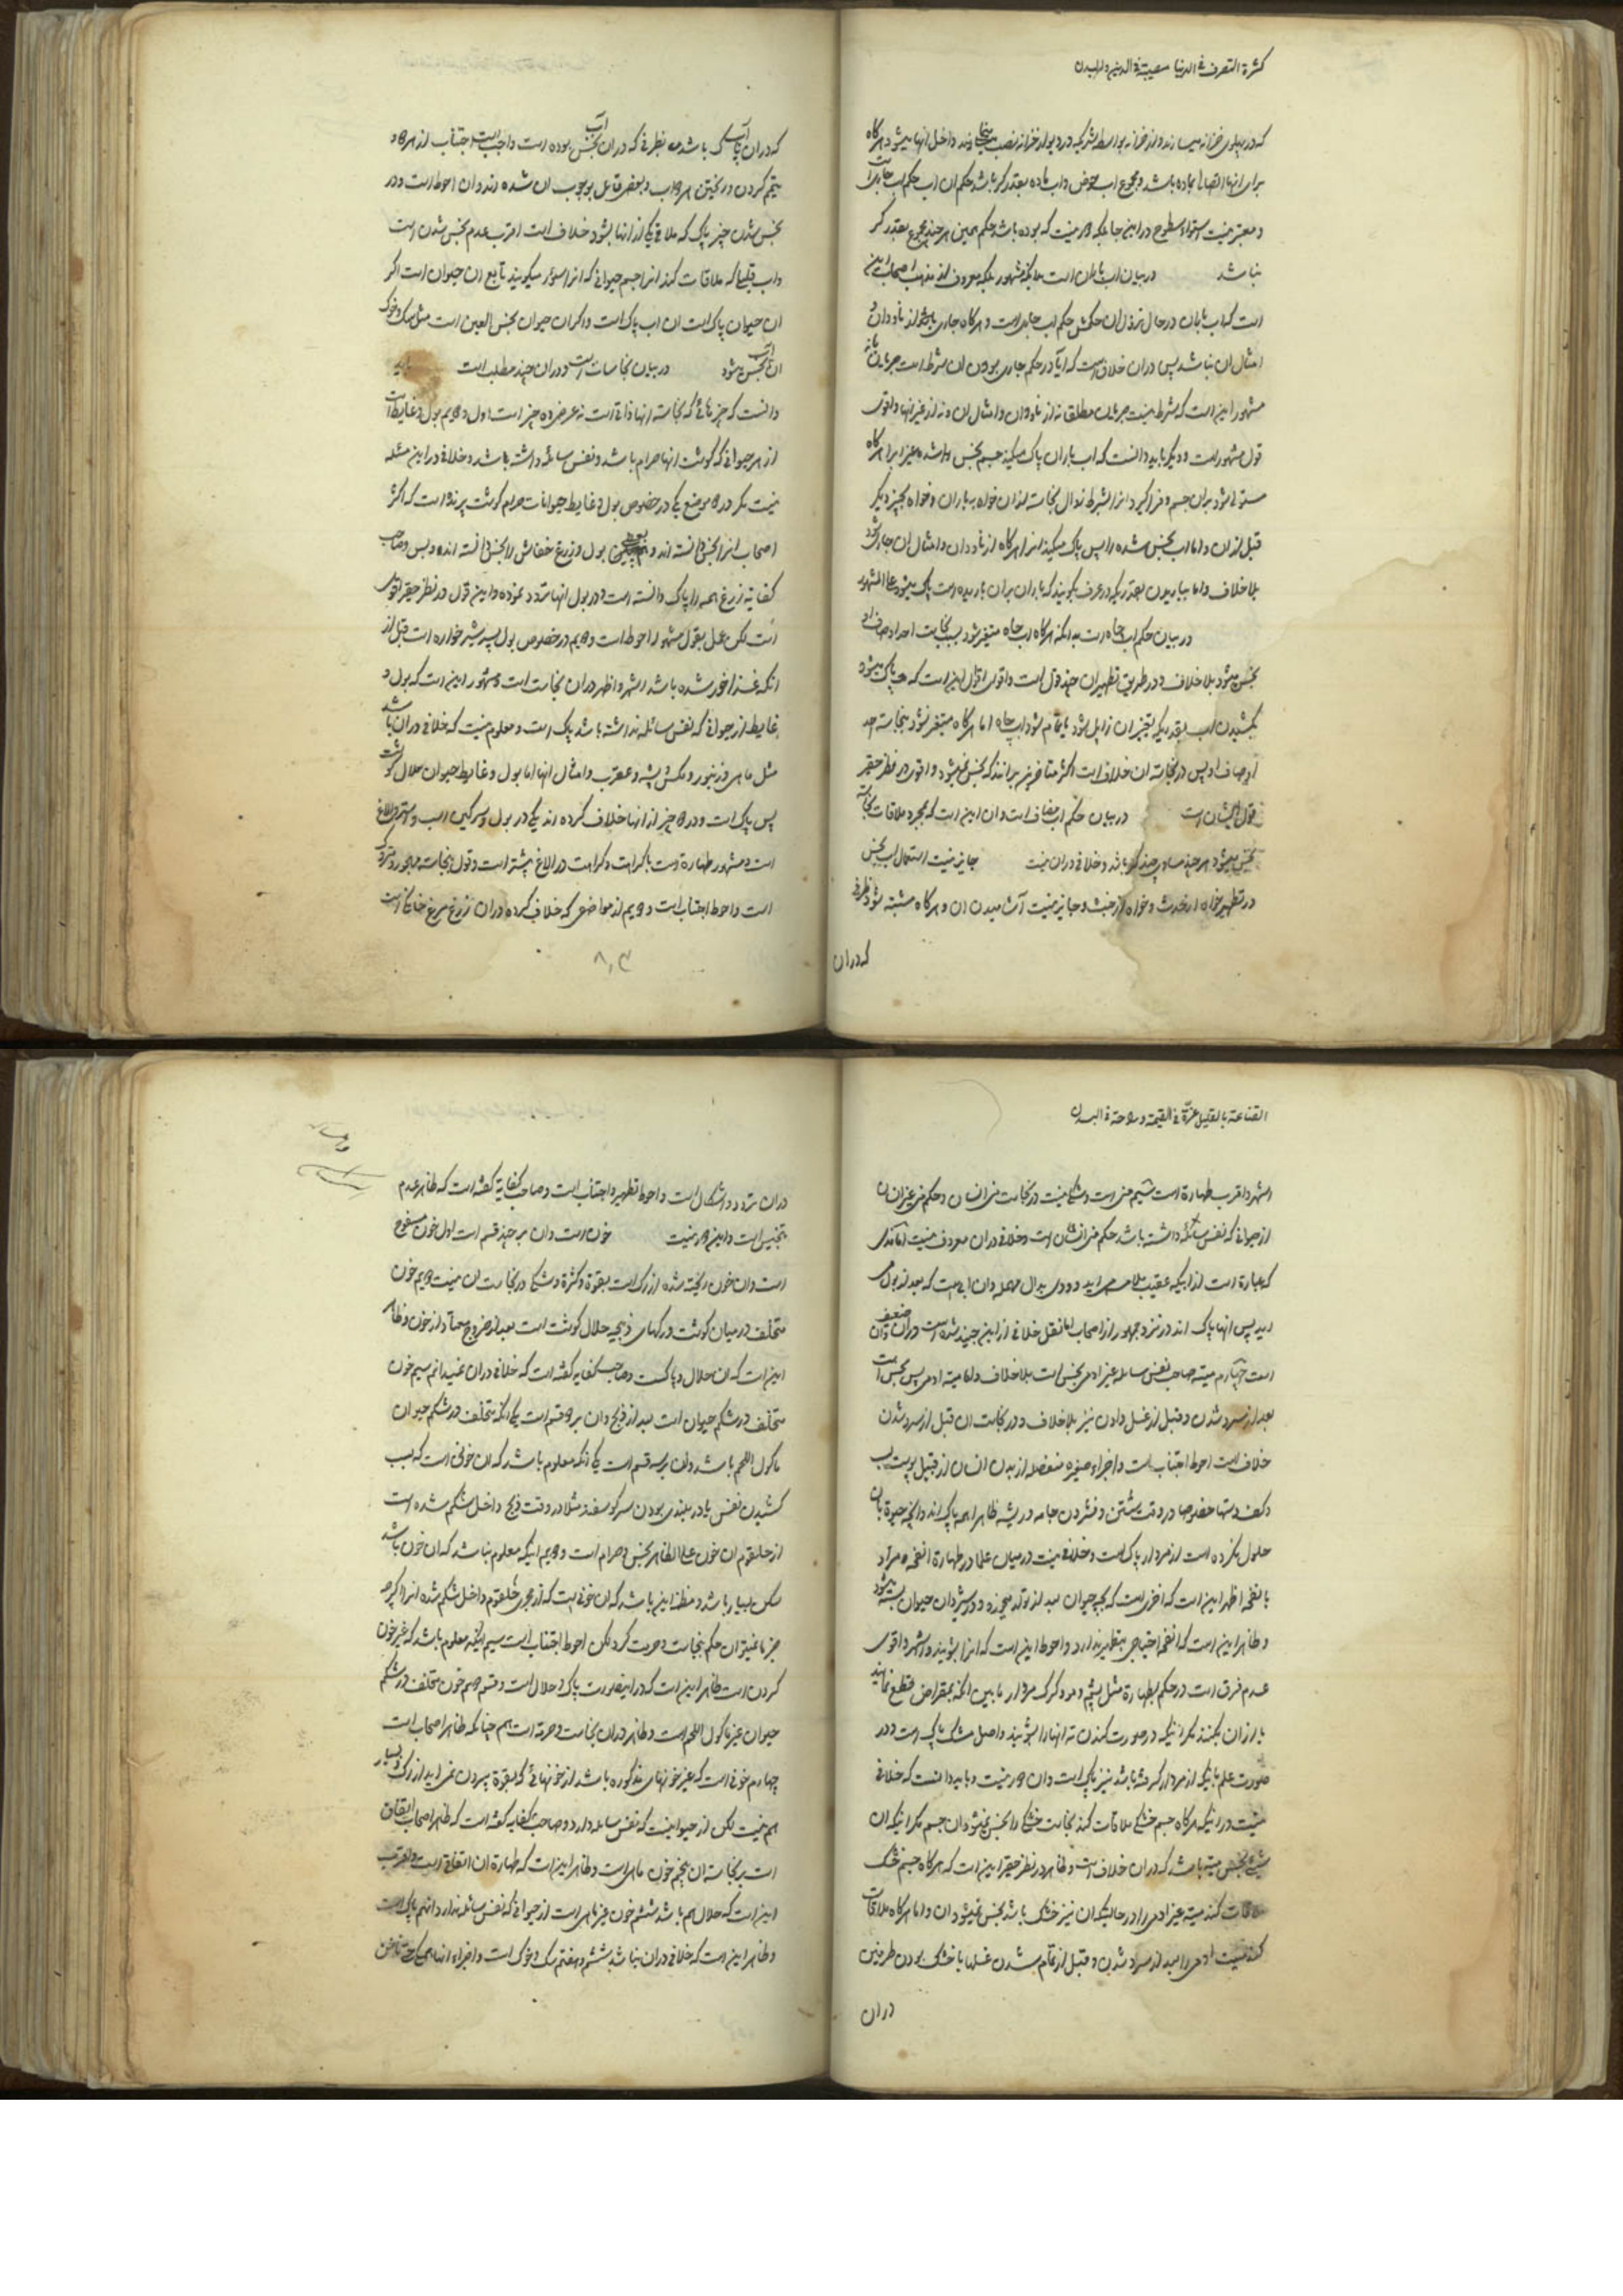 کثرة التصرف فی الدنیا مصیبة فی الدین والبدن
که در پهلوی خزانه میسازند و از خزانه بواسطه شبکیه در دیوار خزانه نصب داخل انها میشود هر کاه
برای انها اتصال بماده باشد و مجموع اب حوض و اب ماده بقدر کر باشد حکم ان اب حکم اب جاریست
و معتبر نیست استواء سطوح در این جا بلکه هر نیست که بوده باشد حکم همین هر چند مجموع بقدر کر
نباشد در بیان اب باران است بدانکه مشهور بلکه معروف از مذهب اصحاب این
است که اب باران در حال نزول ان حکمش حکم اب جاریست و هر کاه جاری نشود از ناودان و
امثال ان نباشد پس در ان خلاف است که ایا در حکم جاری بودن ان شرط است جریان یا نه
مشهور این است که شرط نیست جریان مطلقا نه از ناودان و امثال ان و نه از غیر انها و اقوی
قول مشهور است و دیکر باید دانست که اب باران پاک میکند جسم نجس شده بغیر را هر کاه
مستولی شود بران جسم و فرا کیرد انرا بشرط زوال نجاست از ان خواه بباران و خواه بچیز دیکر
قبل از ان و اما اب نجس شده را پس پاک میکند انرا هر کاه از ناودان و امثال ان جاری شود
بلا خلاف و اما بباریدن بقدریکه در عرف بکویند که باران بران باریده است پاک میشود علی المشهور
در بیان حکم اب چاه است بدانکه هر کاه اب چاه متغیر شود بسبب نجاست احد اوصاف او
نجس میشود بلا خلاف و در طریق تطهیر ان چند قول است و اقوی اقوال این است که پاک میشود
بکشیدن اب بقدریکه تغییر ان زایل شود یا تمام شود اب چاه اما هر کاه متغیر نشود بنجاسة احد
اوصاف او پس در نجاسة ان خلاف است اکثر متاخرین برانند که نجس نمیشود و اقوی در نظر حقیر
قول ایشان است در بیان حکم اب مضاف است و ان این است که بمجرد ملاقات نجاسة
نجس میشود هر چند مساوی چند کر باشد و خلافی در ان نیست جایز نیست استعمال اب نجس
در تطهیر خواه از حدث و خواه از خبث و جایز نیست آشامیدن ان و هر کاه مشتبه شود ظرفی
که در ان
که در ان اب پاک باشد به ظرفی که در ان اب نجس بوده است واجب است اجتناب از هر دو
تیمم کردن و ریختن هر دو اب و بعضی قایل بوجوب ان شده اند و ان احوط است و در
نجس شدن چیز پاک که ملاقی یکی از انها بشود خلاف است اقرب عدم نجس شدن است
و اب قلیلی که ملاقات کند انرا جسم حیوانی که انرا سؤر میکویند تابع ان حیوان است اکر
ان حیوان پاک است ان اب پاک است و اکر ان حیوان نجس العین است مثل سک و خوک
ان اب نجس میشود در بیان نجاسات است و در ان چند مطلب است باید
دانست که چیزهائی که نجاسة انها ذاتی است نه عرضی ده چیز است اول و دویم بول و غایط است
از هر حیوانی که کوشت انها حرام باشد و نفس سائله داشته باشد و خلافی در این مسئله
نیست مکر در دو موضع یکی در خصوص بول و غایط حیوانات حرام کوشت پرنده است که اکثر
اصحاب انرا نجس دانسته اند و بول و زرغ خفاش را نجس دانسته اند و بس و صاحب
کفایة زرغ همه را پاک دانسته است و در بول انها تردد نموده و این قول در نظر حقیر اقوی
است لکن عمل بقول مشهور احوط است و دویم در خصوص بول پسر شیر خواره است قبل از
انکه غذا خور شده باشد اشهر و اظهر در ان نجاست است و مشهور این است که بول و
غایط از حیوانی که نفس سائله نداشته باشد پاک است و معلوم نیست که خلافی در ان باشد
مثل ماهی و زنبور و مکس و پشه و عقرب و امثال انها اما بول و غایط حیوان حلال کوشت
پس پاک است و در دو چیز از انها خلاف کرده اند یکی در بول و سرکین اسب و استر و الاغ
است و مشهور طهارة است با کراهت و کراهت در الاغ بیشتر است و قول بنجاسة مهجور و متروک
است و احوط اجتناب است و دویم از مواضعی که خلاف کرده در ان زرغ مرغ خانکی است
القناعة بالقلیل عزّة فی القیمة و راحة فی البدن
اشهر و اقرب طهارة است سیم منی است و شکی نیست در نجاست منی انسان و حکم منی غیر انسان
از حیوانی که نفس سائله داشته باشد حکم منی انسان است و خلافی در ان معروف نیست اما مذی
که عبارة است از ابیکه عقیب ملامسه می اید و ودی بدال مهمله و ان ابی است که بعد از بول می
اید پس انها پاک اند در نزد جمهور از اصحاب اما نقل خلافی از ابن جنید شده است در ان و ان ضعیف
است چهارم میتة صاحب نفس سائله غیر ادمی نجس است بلا خلاف و اما میتة ادمی پس نجس است
بعد از سرد شدن و قبل از غسل دادن نیز بلا خلاف و در نجاست ان قبل از سرد شدن
خلاف است احوط اجتناب است و اجزاء صغیره منفصله از بدن انسان از قبیل پوست لب
و کف دستها خصوصا در وقت شستن و فشردن جامه و ریشه ظاهرا همه پاک اند و انچه حیوة بان
حلول نکرده است از مردار پاک است و خلافی نیست در میان علما در طهارة انفحه و مراد
بانفحه اظهر این است که اخری است که بچه حیوان بعد از تولد میخورد و در شیردان حیوان بسته میشود
و ظاهر این است که انفحه احتیاجی بتطهیر ندارد و احوط این است که انرا بشویند و اشهر و اقوی
عدم فرق است در حکم بطهارة مثل پشم و مو و کرک مردار ما بین انکه بمقراض قطع نمایند
یا از ان بکنند مکر انیکه در صورت کندن ته انها را بشویند و اصل مشک پاک است و در
صورت علم باینکه از مردار کرفته باشد نیز پاک است و ان هر نیست و باید دانست که خلافی
نیست در اینکه هر کاه جسم خشکی ملاقات کند نجاست خشکی را نجس نمیشود ان جسم مکر اینکه ان
شئ نجس میتة باشد که در ان خلاف است و ظاهر در نظر حقیر این است که هر کاه جسم خشک
ملاقات کند میتة غیر ادمی را در حالتیکه ان نیز خشک باشد نجس نمیشود ان و اما هر کاه ملاقات
کند میت ادمی را بعد از سرد شدن و قبل از تمام شدن غسلها با خشک بودن طرفین
در ان
در ان تردد و اشکال است و احوط تطهیر و اجتناب است و صاحب کفایة کفته است که ظاهر عدم
تنجیس است و این هر نیست خون است و ان بر چند قسم است اول خون مسفوح
است و ان خون ریخته شده از رک است بقوة و کثرة و شکی در نجاست ان نیست دویم خون
متخلف در میان کوشت و رکهای ذبیحه حلال کوشت است بعد از خروج معتاد از خون و ظاهر
این است که ان حلال و پاکست و صاحب کفایة کفته است که خلافی در ان نمیدانم سیم خون
متخلف در شکم حیوان است بعد از ذبح و ان بر دو قسم است یکی انکه متخلف در شکم حیوان
ماکول اللحم باشد و ان بر سه قسم است یکی انکه معلوم باشد که ان خونی است که بسبب
کشیدن نفس یا در بلندی بودن سر کوسفند مثلا در وقت ذبح داخل شکم شده است
از حلقوم ان خون علی الظاهر نجس و حرام است و دویم انیکه معلوم نباشد که ان خون باشد
لکن بسیار باشد و مظنه این باشد که ان خونی است که از مجری حلقوم داخل شکم شده انرا اکر چه
جزما نمیتوان حکم بنجاست و حرمت کرد لکن احوط اجتناب است سیم انکه معلوم باشد که غیر خون
کردن است ظاهر این است که در اینصورت پاک و حلال است و قسم دویم خون متخلف در شکم
حیوان غیر ماکول اللحم است و ظاهر در ان نجاست و حرمة است هم چنانکه ظاهر اصحاب است
چهارم خونی است که غیر خونهای مذکوره باشد از خونهائی که بقوة بیرون نمی اید از رک و بسیار
هم نیست لکن از حیوانیست که نفس سائله دارد و صاحب کفایه کفته است که ظاهر اصحاب اتفاق
است بر نجاسة ان پنجم خون ماهی است و ظاهر این است که طهارة ان اتفاقی است و اقرب
این است که حلال هم باشد ششم خون غیر ماهی است از حیوانی که نفس سائله ندارد انهم پاک است
و ظاهر این است که خلافی در ان نباشد ششم و هفتم سک و خوک است و اجزاء انها همکی حتی ناخن